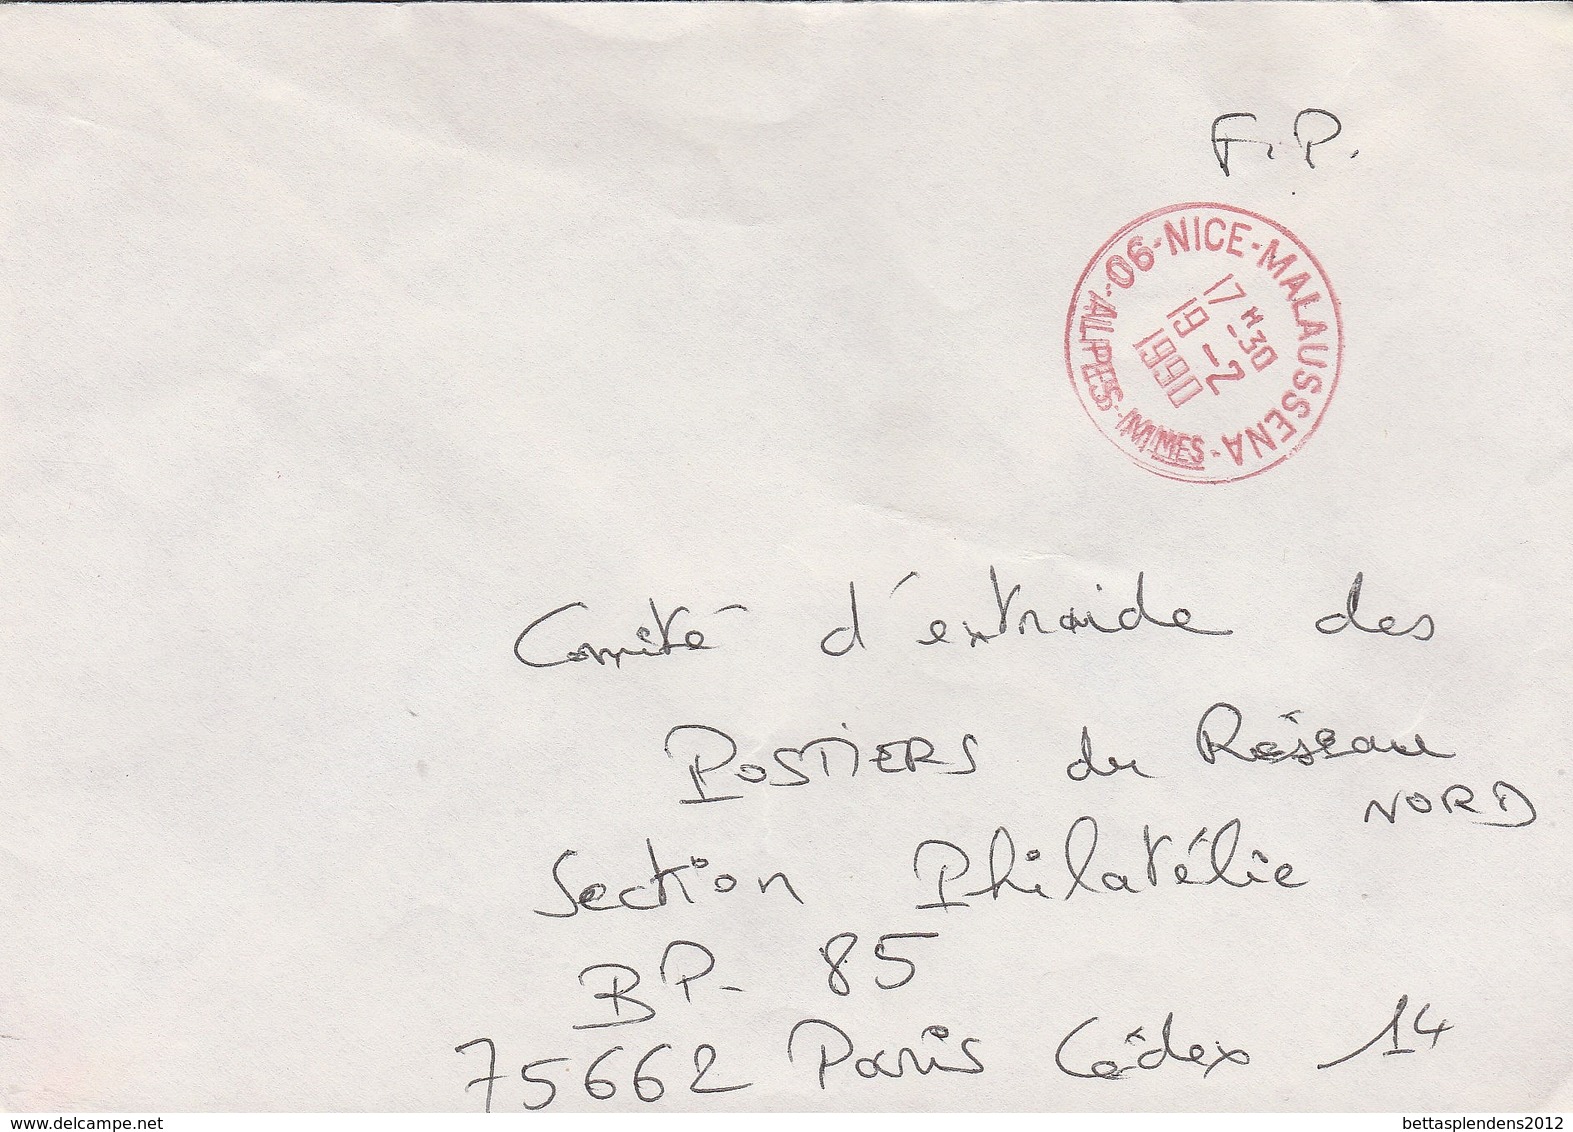 F.P.
06-NICE-MALAUSSENA-
-ALPES-MMES
17H30
19-2
1990
Comité d'entraide des
POSTIERS du Réseau
NORD
Section Philatélie
BP. 85
75662 Paris Cédex 14
www.delcampe.net
bettasplendens2012